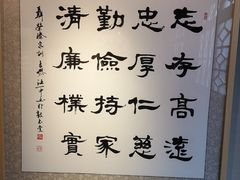 志存高遠
忠厚仁慈
勤儉持家
清廉樸實